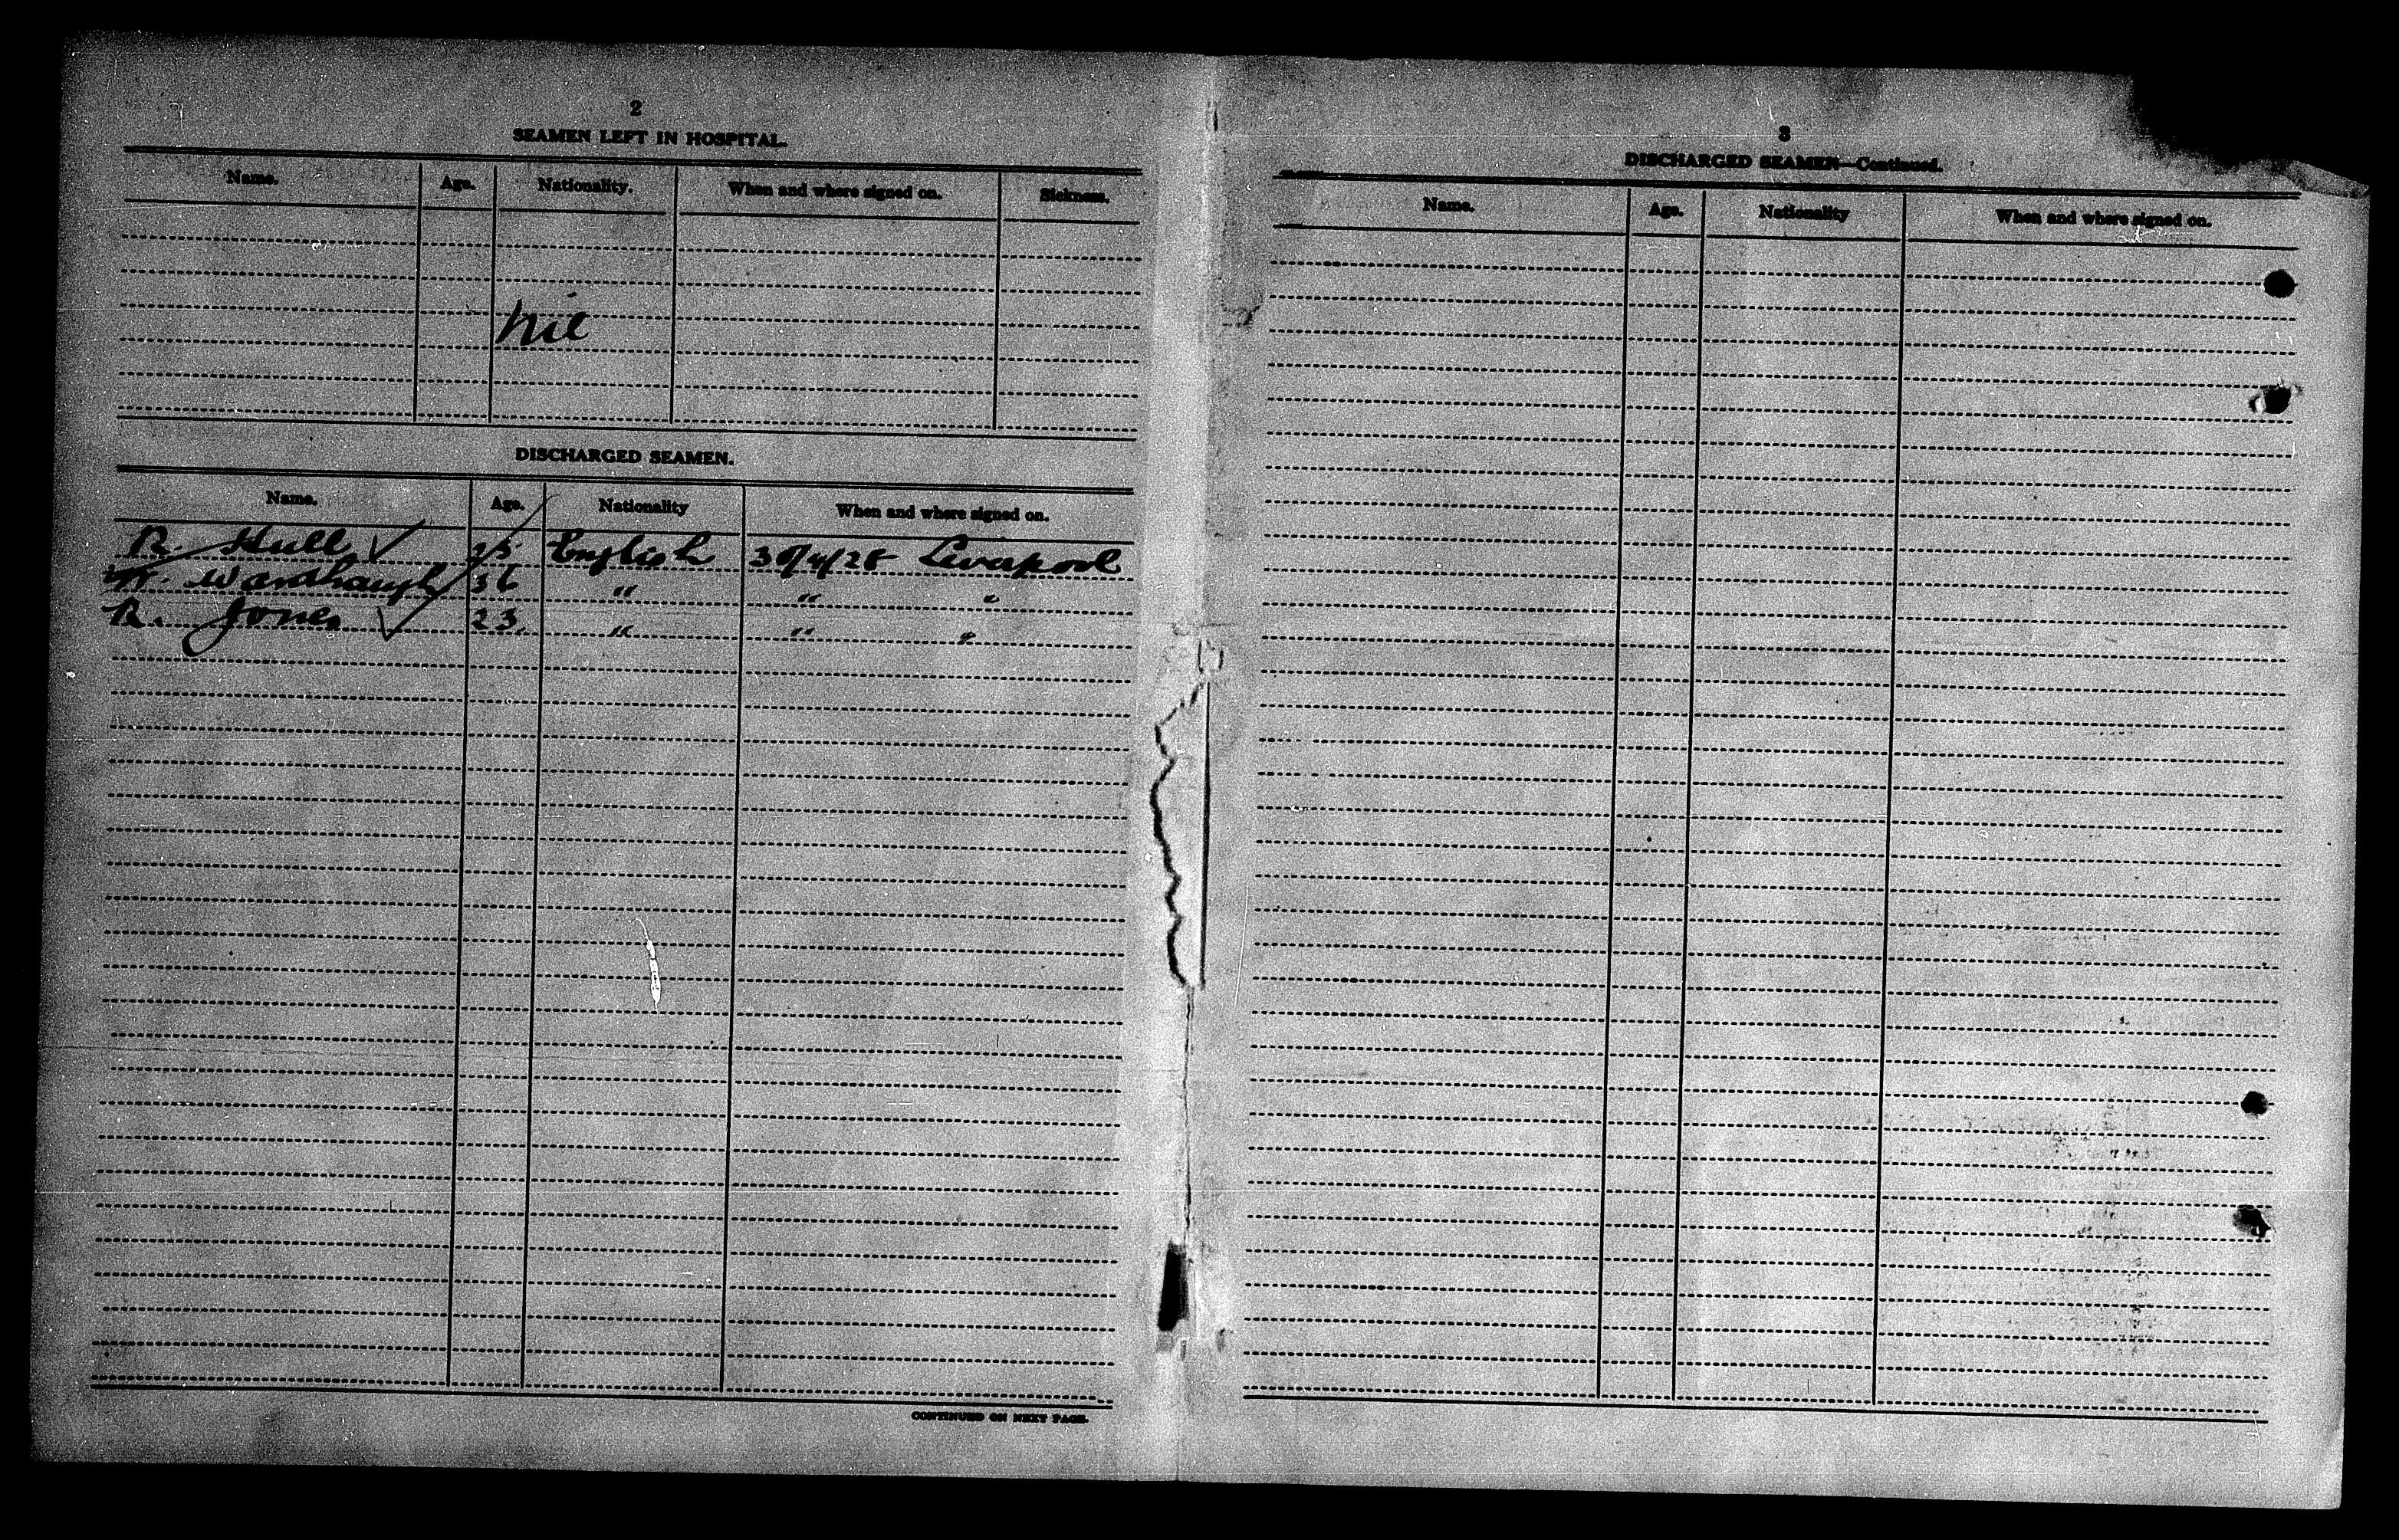 2
SEAMEN LEFT IN HOSPITAL.
Name. Age. Nationality. When and where signed on. Sickness.
Nil
DISCHARGED SEAMEN.
Name. Age. Nationality When and where signed on.
R. Hull ✓ English Liverpool
Wardhaugh 36 " " "
R. Jones ✓ 23 " " "
CONTINUED ON NEXT PAGE.
3
DISCHARGED SEAMEN—Continued.
Name. Age. Nationality When and where signed on.